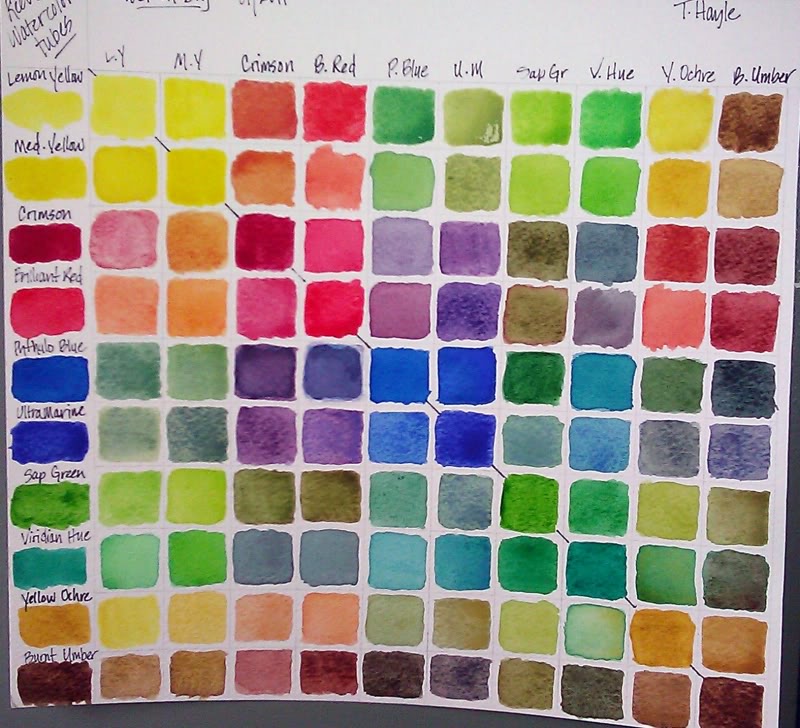 Watercolor
tubes
T. Hayle
L.Y M.Y Crimson B. Red P. Blue U.M Sap Gr V. Hue Y. Ochre B. Umber
Lemon Yellow
Med. Yellow
Crimson
Brilliant Red
Phthylo Blue
Ultramarine
Sap Green
Viridian Hue
Yellow Ochre
Burnt Umber